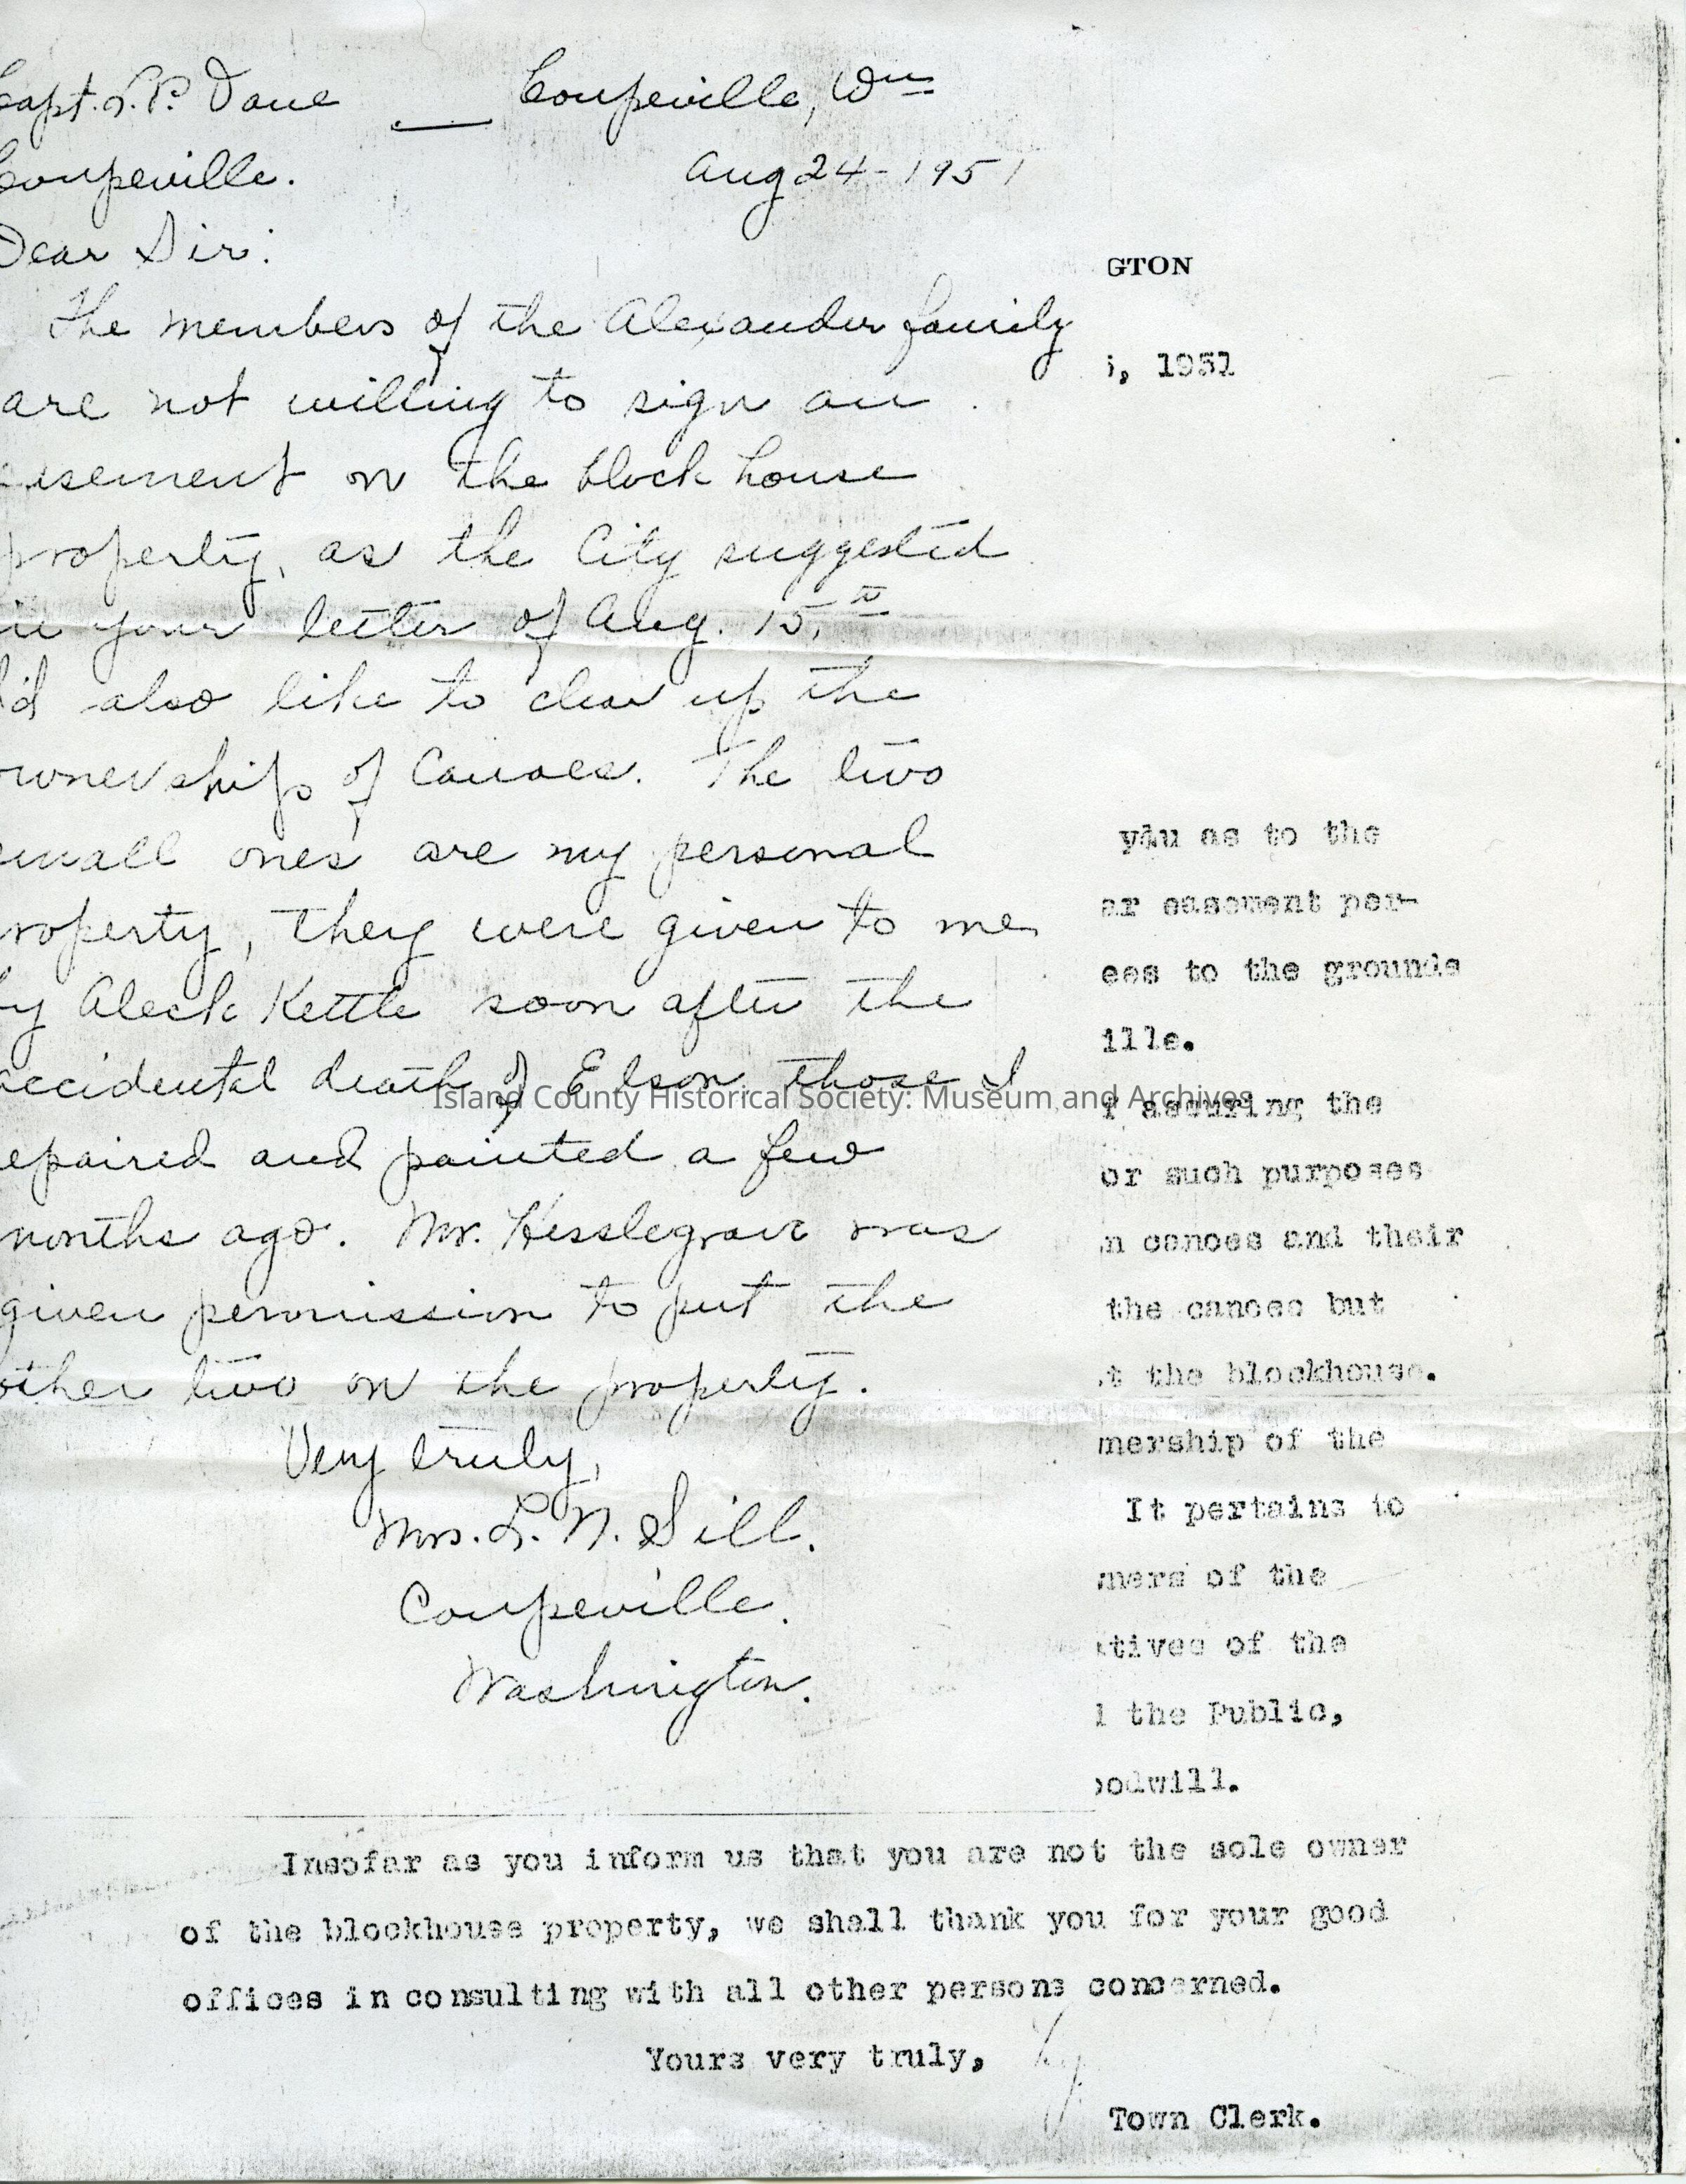 Capt. L.P. Dave — Coupeville, Wn
Coupeville. Aug 24 - 1951
Dear Sir:
The members of the Alexander family
are not willing to sign an
easement on the block house
property, as the City suggested
in your letter of Aug. 15,th
I'd also like to clear up the
ownership of Canoes. The two
small ones are my personal
property, they were given to me
by Aleck Kettle soon after the
accidental death of Elson those I
repaired and painted a few
months ago. Mr. Hesslegrave was
given permission to put the
other two on the property.
Very truly,
Mrs. L. N. Sill.
Coupeville.
Washington.
GTON
, 1951
you as to the
ar easement per-
ees to the grounds
ille.
f assuring the
or such purposes
n canoes and their
the canoes but
t the blockhouse.
nership of the
It pertains to
ners of the
tives of the
l the Public,
oodwill.
Insofar as you inform us that you are not the sole owner
of the blockhouse property, we shall thank you for your good
offices in consulting with all other persons concerned.
Yours very truly,
Town Clerk.
Island County Historical Society: Museum and Archives